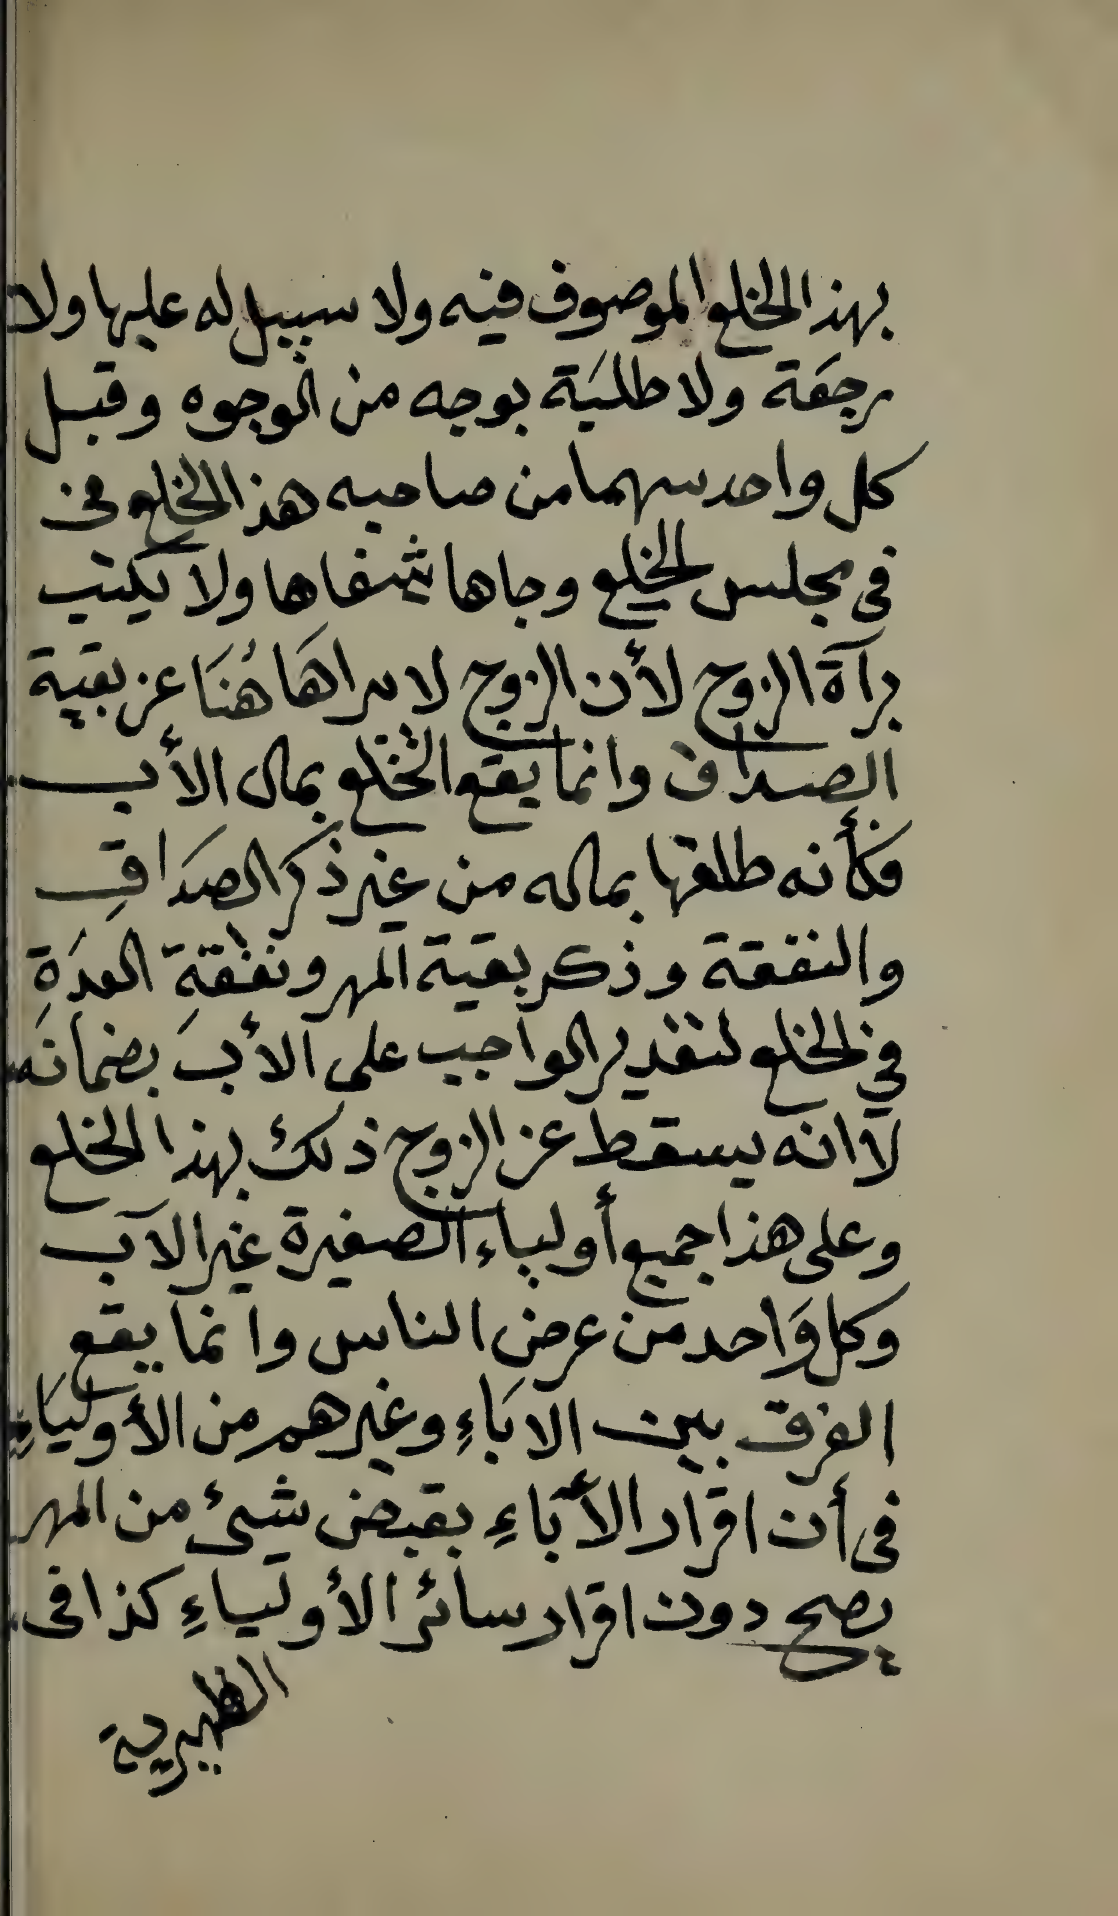 بهذا الخلع الموصوف فيه ولا سبيل له عليها ولا
رجعة ولا طلبَة بوجه من الوجوه وقبل
كل واحد منهما من صاحبه هذا الخلع فى
فى مجلس الخلع وجاها شفاها ولا يكتب
برآة الزوج لأن الزوج لا يبرا هَا هُنَا عن بقية
الصداق وانما يقع الخلع بمال الأب
فكأنه طلقها بماله من غير ذكر الصدَاقِ
والنفقة وذكر بقية المهر ونفقةِ العدَةِ
في الخلع لتقدير الواجب على الأبَ بضمانَه
لا انه يسقط عن الزوج ذلك بهذا الخلع
وعلى هذا جميع أولياء الصغيرة غير الآب
وكل وَاحد من عرض الناس وانما يقع
الفرق بين الابَاءِ وغيرهم من الأوليَاءِ
فى أن اقرار الأبَاءِ بقبض شئ من المهر
يصح دون اقرار سائر الأولياءِ كذا فى
الظهيرية